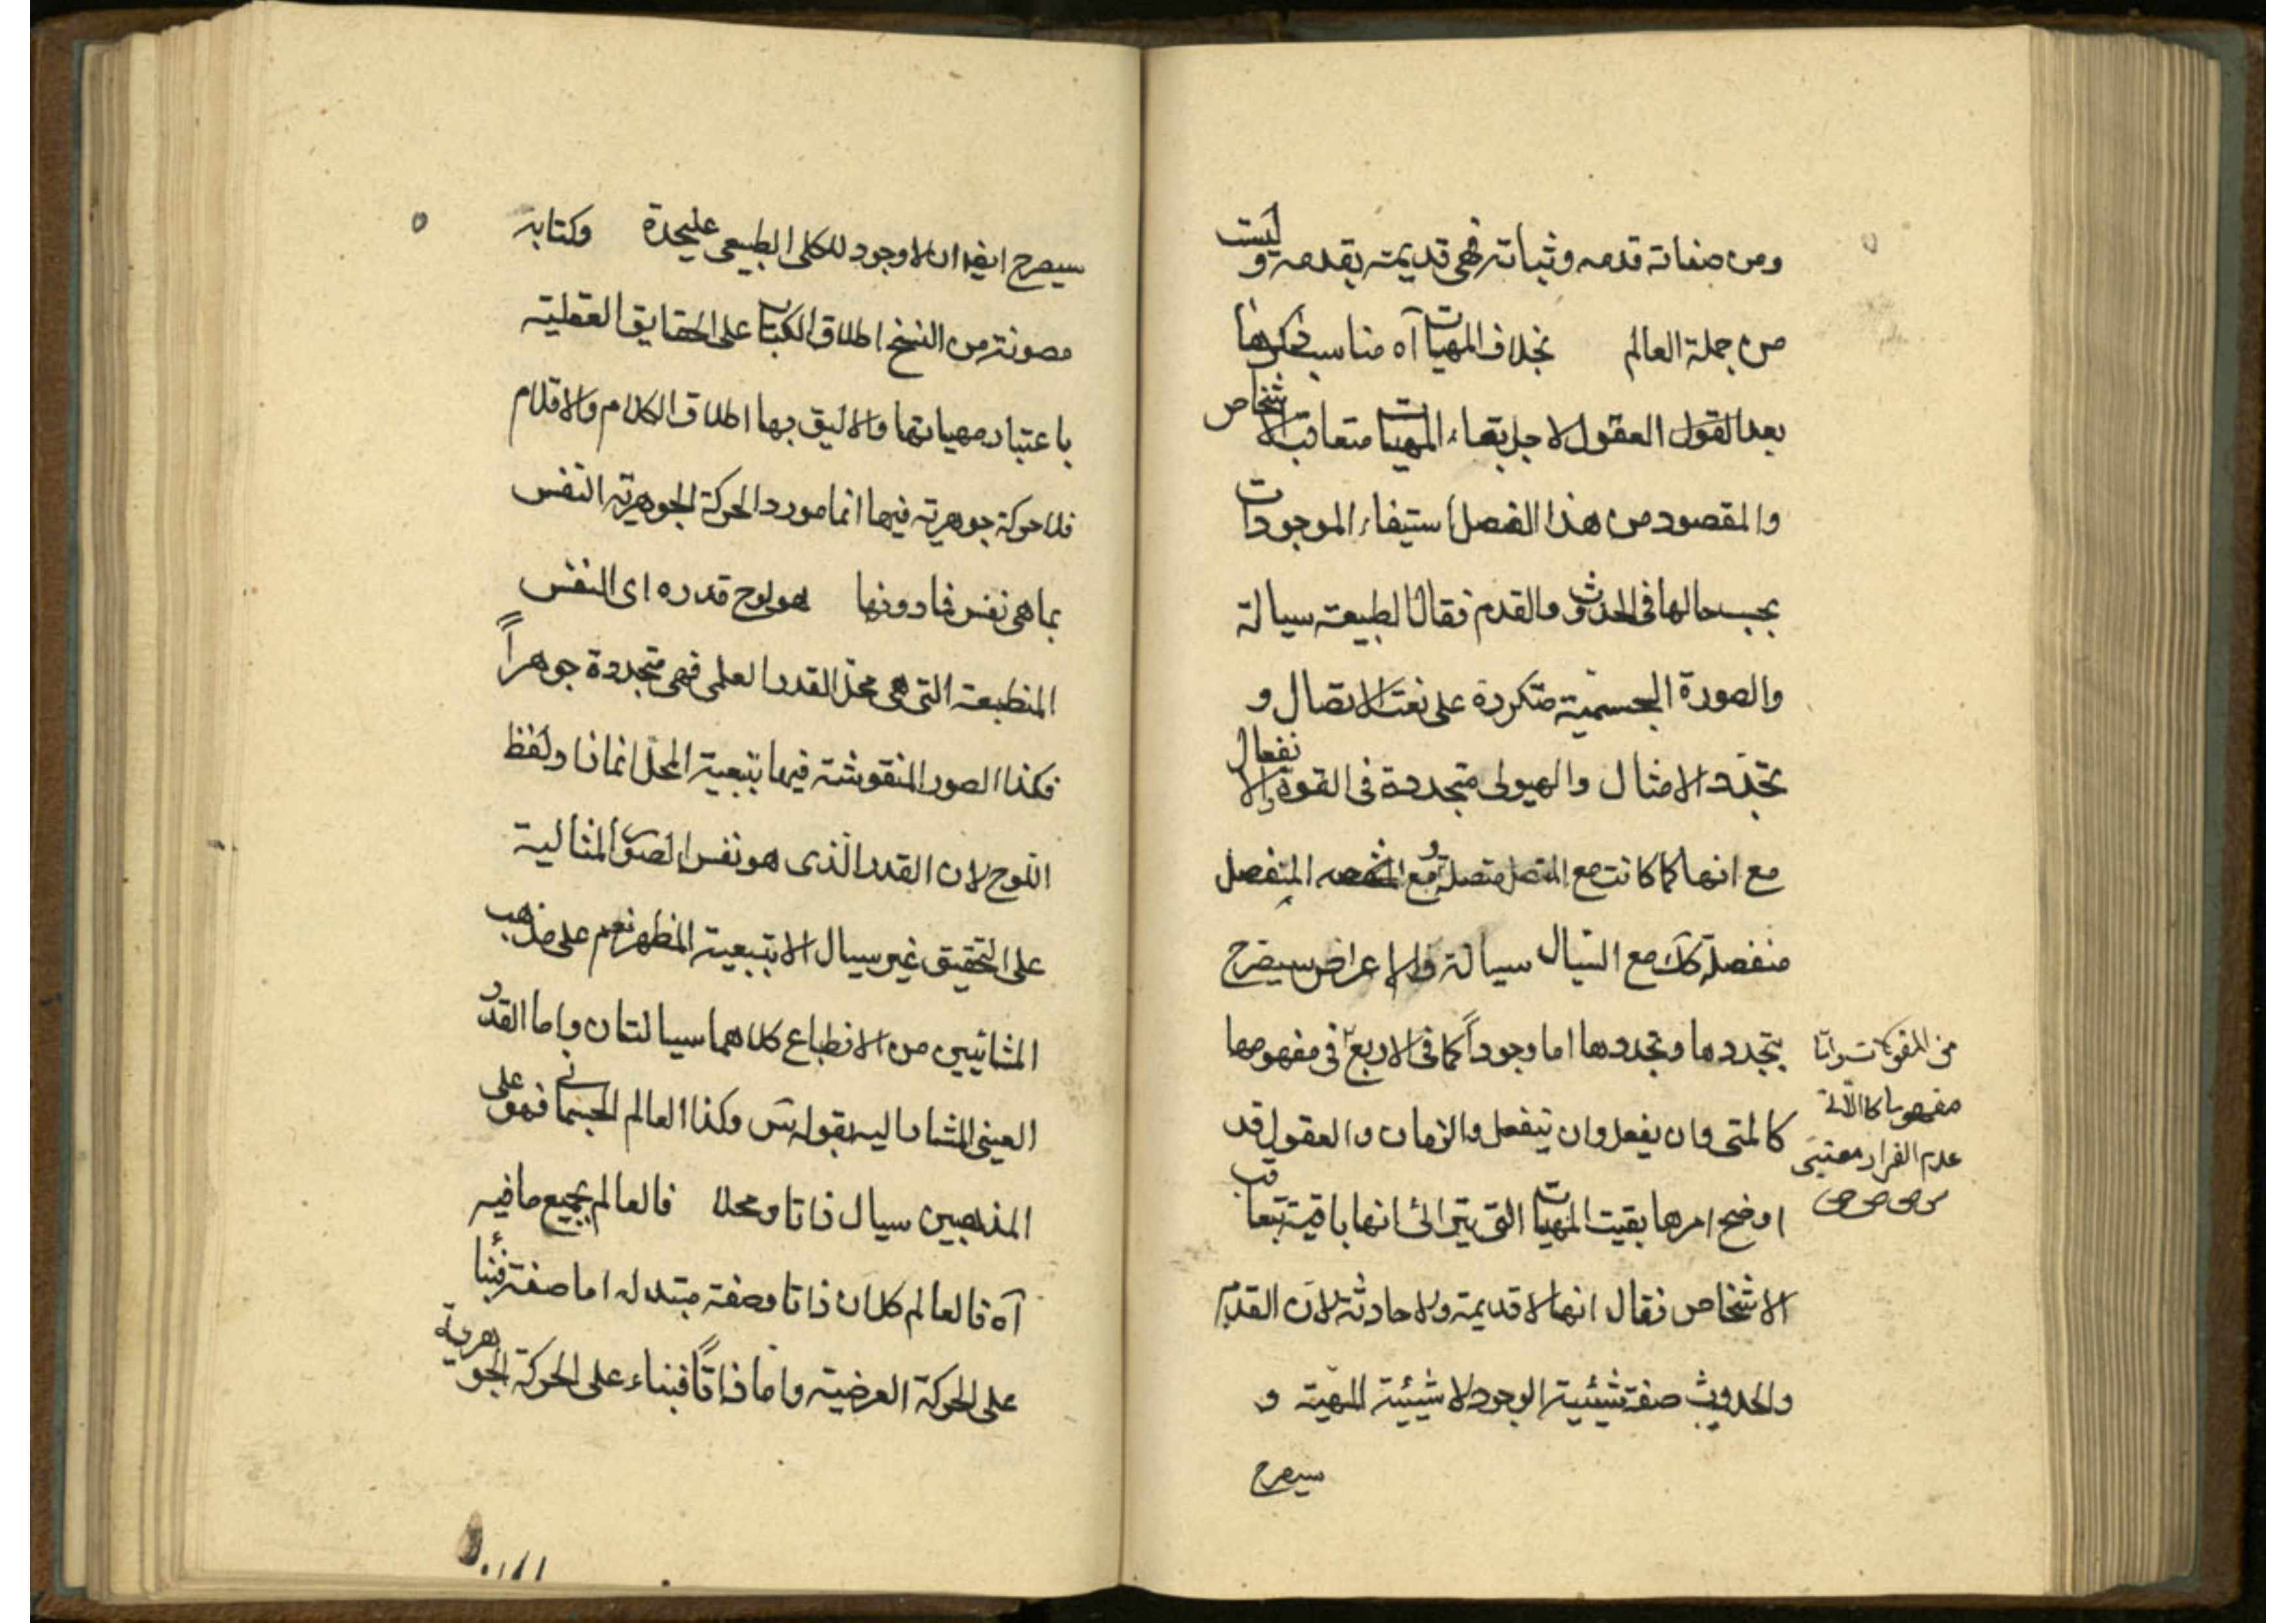 ومن صفاته قدمه وثباته فهى قديمة بقدمه وليست
من جملة العالم بخلاف المهيات آه مناسب ذكرها
بعد القول العقول لاجل بقاء المهيات متعاقب الاشخاص
والمقصود من هذا الفصل استيفاء الموجودات
بحسب حالها فى الحدوث والقدم فقال الطبيعة سيالة
والصورة الجسمية متكررة على نعت الاتصال و
تجدد الامثال والهيولى متجددة فى القوة والانفعال
مع انها كما كانت مع المتصل متصلة ومع المنفصل
منفصلة كك مع السيال سيالة والاعراض سيصرح
بتجددها وتجددها اما وجوداً كما فى الاربع فى مفهومها
كالمتى وان يفعل وان ينفعل والزمان والعقول قد
اوضح امرها بقيت المهيات التى يترائى انها باقية بتعاقب
الاشخاص فقال انها لا قديمة ولا حادثة لان القدم
والحدوث صفة شيئية الوجود لا شيئية المهية و
سيصرح
من المقولات واما
عدم القرار معتبر
سيصرح ايضا ان لا وجود للكلى الطبيعى عليحدة وكتابه
مصونة من النسخ اطلاق الكتاب على الحقايق العقلية
باعتبار مهياتها والاليق بها اطلاق الكلام والاقلام
فلا حركة جوهرية فيها انما مورد الحركة الجوهرية النفس
بما هى نفس فما دونها هو لوح قدره اى النفس
المنطبعة التى هى محل القدر العلمى فهى متجددة جوهراً
فكذا الصور المنقوشة فيها بتبعية المحل انما نا ولفظ
اللوح لان القدر الذى هو نفس الصور المثالية
على التحقيق غير سيال الا بتبعية المظهر نعم على مذهب
المشائيين من الانطباع كلاهما سيالتان واما القدر
العينى المشار اليه بقوله س وكذا العالم الجسمانى فهو على
المذهبين سيال ذاتا ومحلا فالعالم بجميع ما فيه
آه فالعالم كلان ذاتا وصفة متبدله اما صفة فبنأ
على الحركة العرضية واما ذاتاً فبناء على الحركة الجوهرية